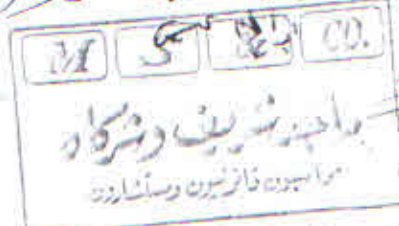 M S & CO.
ماجد شريف وشركاه
محاسبون قانونيون ومستشارون